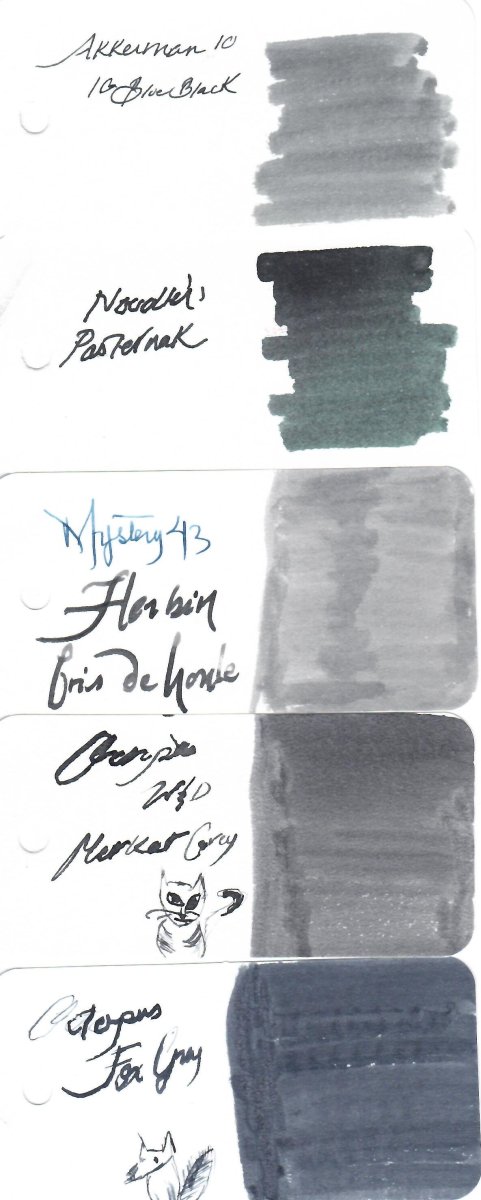 Akkerman 10
IG Blue Black
Noodler's
Pasternak
Mystery 43
Herbin
Gris de houle
Octopus
W&D
Merkat Gray
Octopus
Fox Gray